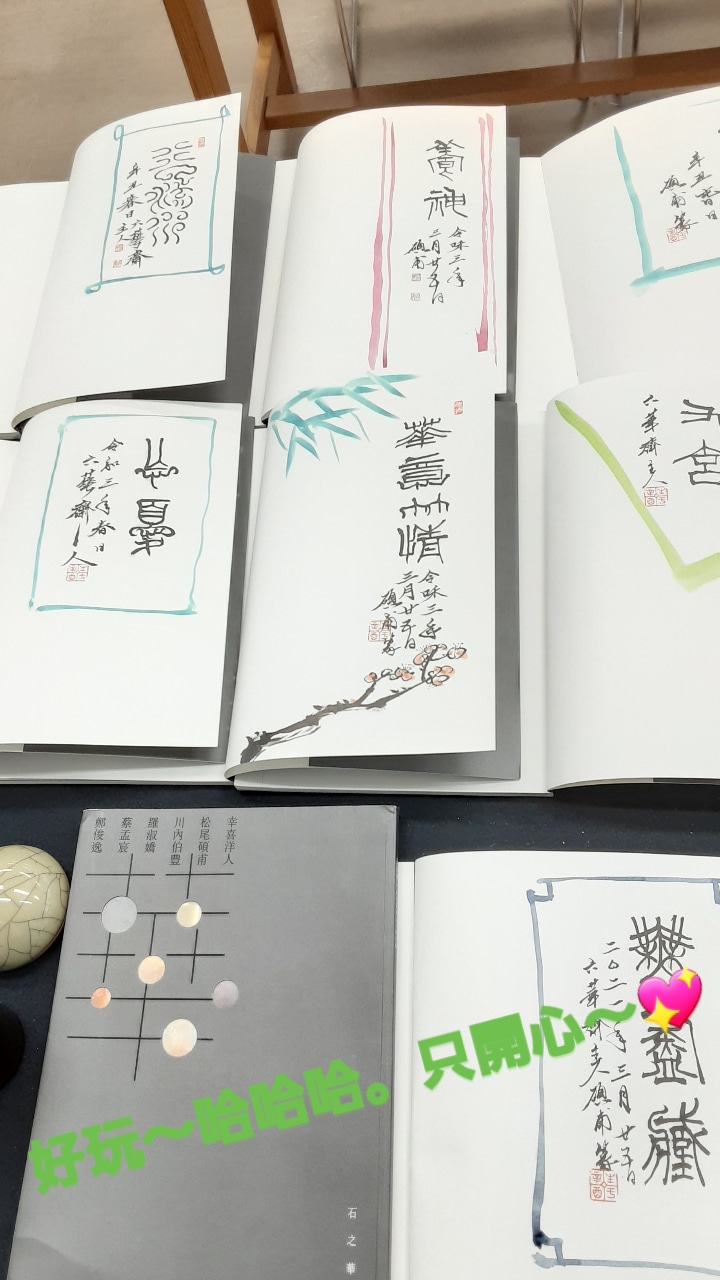 辛丑春日六華齋
主人
養神
令和三年
三月廿五日
碩甫
忘憂
令和三年春日
六華齋主人
華意竹情
令和三年
三月廿五日
碩甫篆
六華齋主人
幸喜洋人
松尾碩甫
川內伯豊
羅淑嬌
蔡孟宸
鄭俊逸
石之華
無盡藏
二〇二一年三月廿五日
六華齋主人碩甫篆
好玩~哈哈哈。只開心~💖